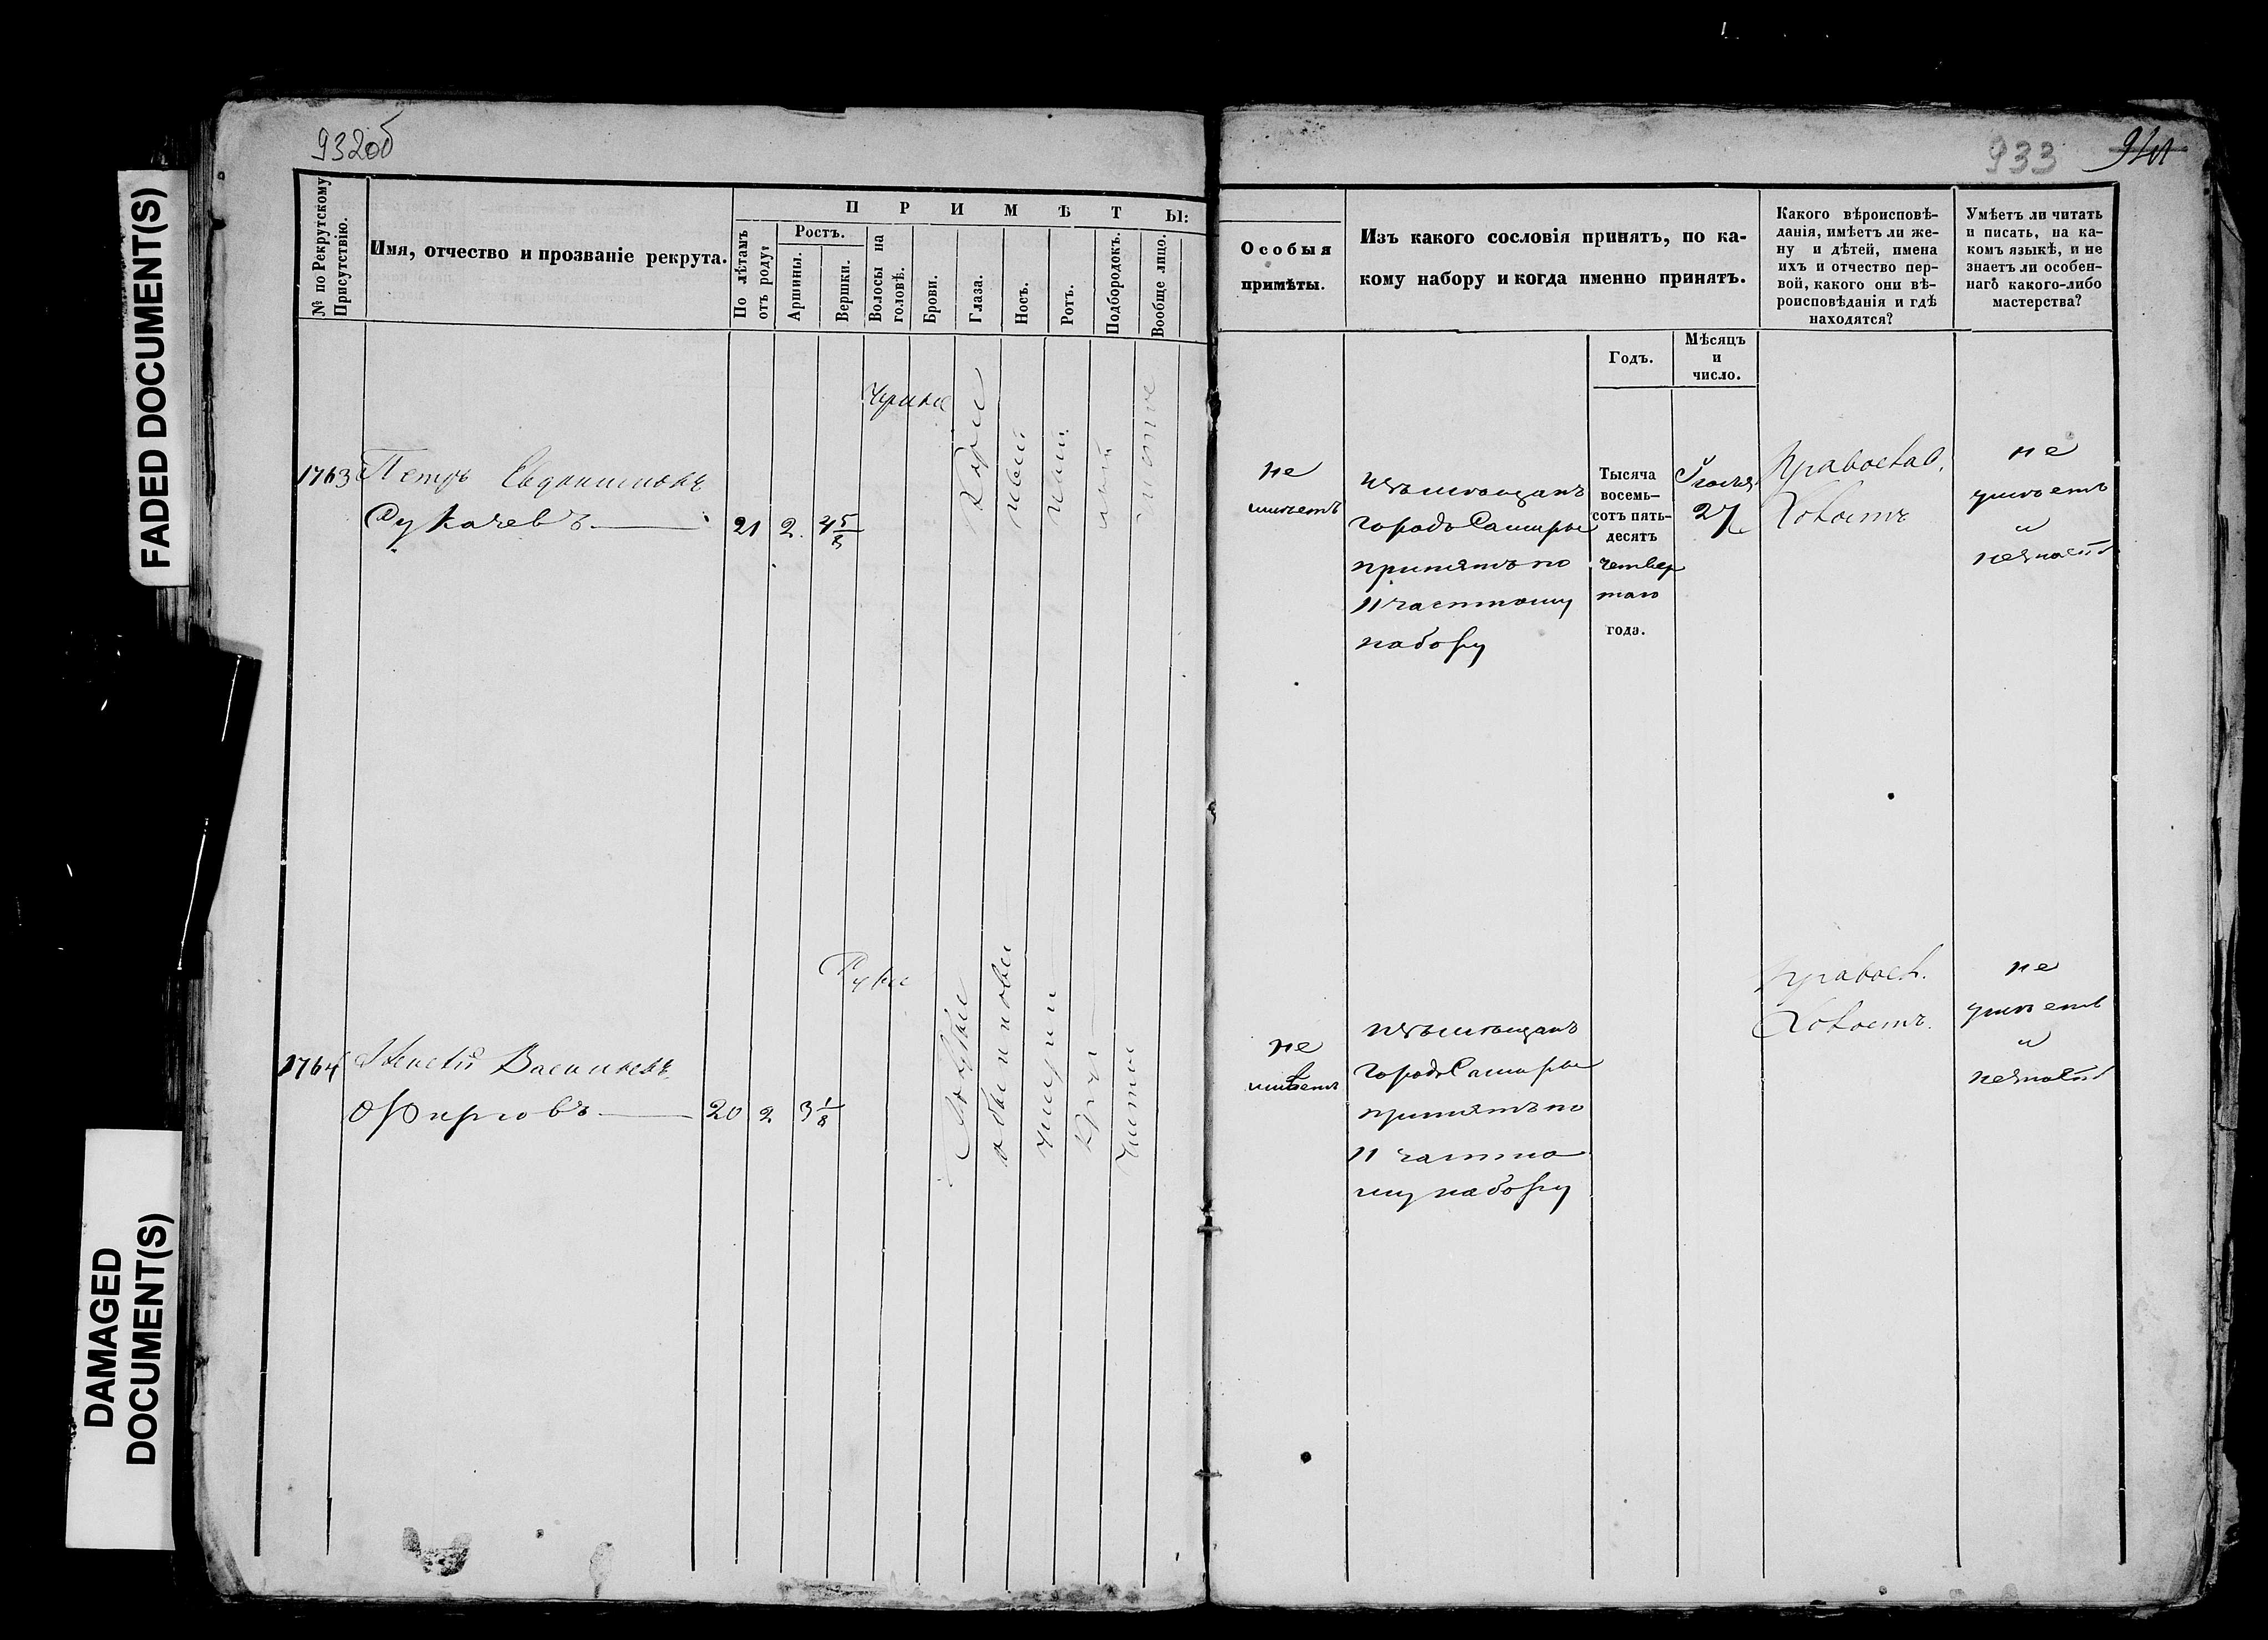 FADED DOCUMENT(S)
DAMAGED
DOCUMENT(S)
932об
№ по Рекрутскому
Присутствію.
Имя, отчество и прозваніе рекрута.
П Р И М Ѣ Т Ы:
По лѣтамъ
отъ роду
Ростъ.
Аршины.
Вершки.
Волосы на
головѣ.
Брови.
Глаза.
Носъ.
Ротъ.
Подбородокъ.
Вообще лицо.
1763 Петръ
21 2. 4 5/8
Каріе
1764 Васильевъ
20 2 3 1/8
Русые
Голубые
Чистое
933
Особыя
примѣты.
Изъ какого сословія принятъ, по ка-
кому набору и когда именно принятъ.
Какого вѣроисповѣ-
данія, имѣетъ ли же-
ну и дѣтей, имена
ихъ и отчество пер-
вой, какого они вѣ-
роисповѣданія и гдѣ
находятся?
Умѣетъ ли читать
и писать, на ка-
комъ языкѣ, и не
знаетъ ли особен-
наго какого-либо
мастерства?
Годъ.
Мѣсяцъ
и
число.
не
имѣетъ
изъ мѣщанъ
города Самары
принятъ по
11 частному
набору
Тысяча
восемь-
сотъ пять-
десятъ
четвер
таго
года.
Іюля
27
Православ.
Холостъ
не
умѣетъ
и
не знаетъ
не
имѣетъ
изъ мѣщанъ
города Самары
принятъ по
11 частно
му набору
Правосл.
Холостъ.
не
умѣетъ
и
не знаетъ